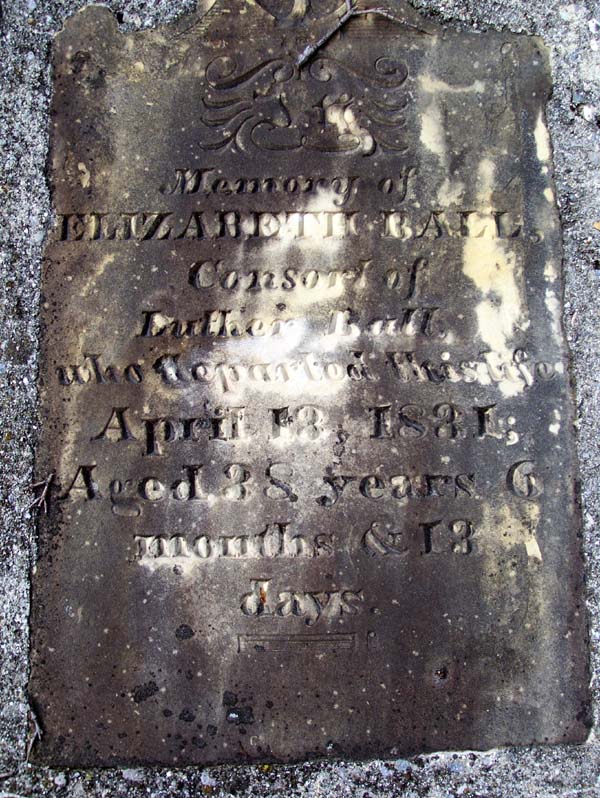 Memory of
ELIZABETH BALL,
Consort of
Luther Ball,
who departed this life
April 13, 1831;
Aged 38 years 6
months & 13
days.